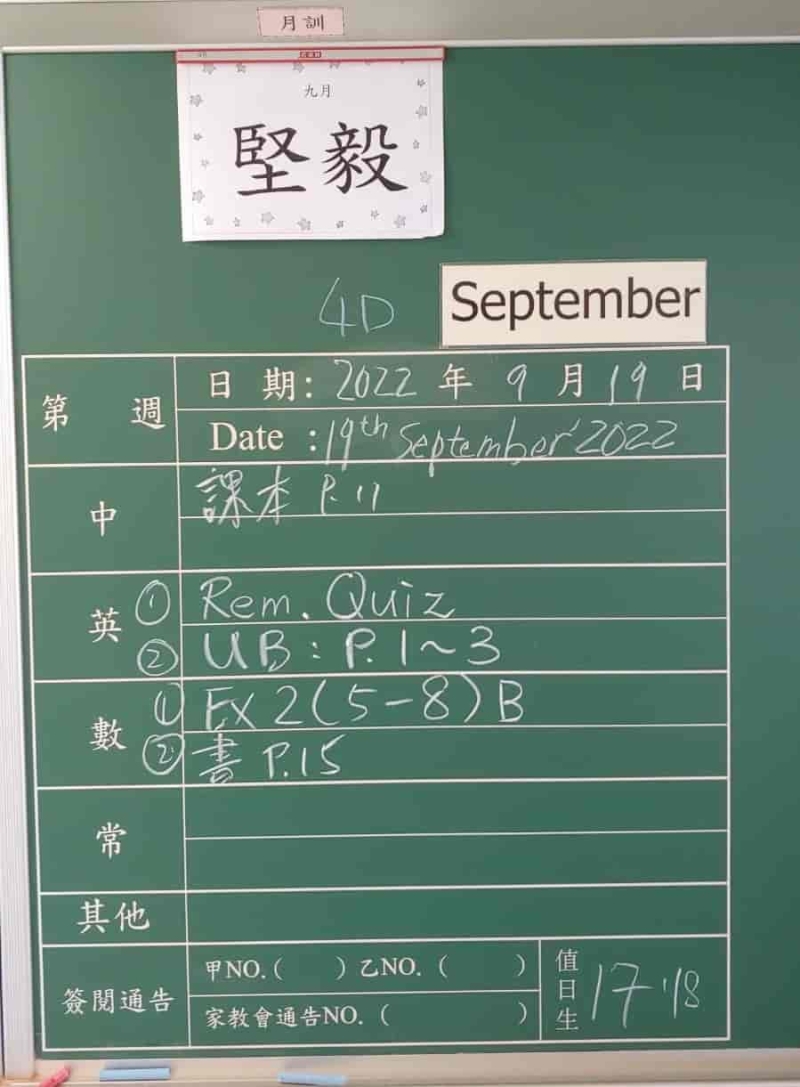 月訓
九月
堅毅
4D
September
第 週
日 期: 2022 年 9 月 19 日
Date : 19th September 2022
中
課本 P.11
英
① Rem. Quiz
② UB: P.1~3
數
① Ex 2(5-8)B
② 書 P.15
常
其他
簽閱通告
甲NO.( ) 乙NO. ( )
家教會通告NO. ( )
值日生
17、18